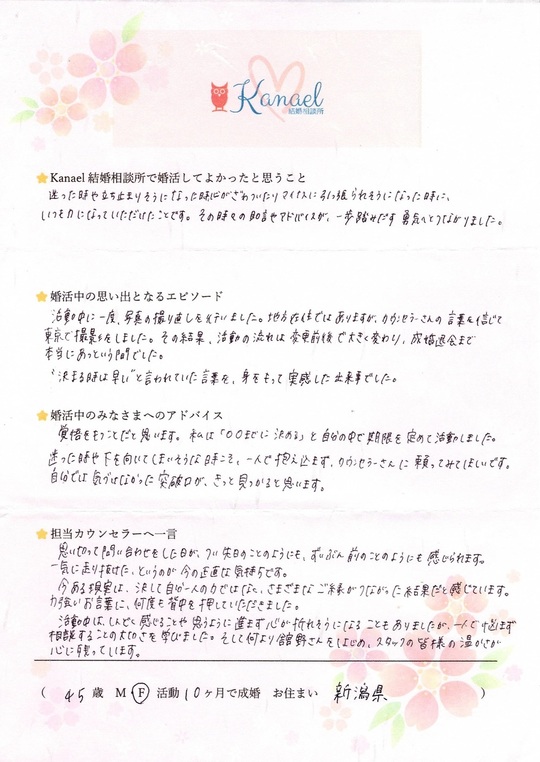 Kanael
結婚相談所
Kanael 結婚相談所で婚活してよかったと思うこと
迷った時や立ち止まりそうになった時心がざわついたりマイナスに引っ張られそうになった時に、
いつも力になっていただいたことです。その時々の助言やアドバイスが、一歩踏みだす勇気へとつながりました。
婚活中の思い出となるエピソード
活動中に一度、写真の撮り直しを行いました。地方在住ではありますが、カウンセラーさんの言葉を信じて
東京で撮影をしました。その結果、活動の流れは変更前後で大きく変わり、成婚退会まで
本当にあっという間でした。
"決まる時は早い"と言われていた言葉を、身をもって実感した出来事でした。
婚活中のみなさまへのアドバイス
覚悟をもつことだと思います。私は「〇〇までに決める」と自分の中で期限を定めて活動しました。
迷った時や下を向いてしまいそうな時こそ、一人で抱え込まず、カウンセラーさんに頼ってみてほしいです。
自分では気づけなかった突破口が、きっと見つかると思います。
担当カウンセラーへ一言
思い切って問い合わせをした日が、つい先日のことのようにも、ずいぶん前のことのようにも感じられます。
一気に走り抜けた、というのが今の正直な気持ちです。
今ある現実は、決して自分一人の力ではなく、さまざまなご縁がつながった結果だと感じています。
力強いお言葉に、何度も背中を押していただきました。
活動中は、しんどく感じることや思うように進まず心が折れそうになることもありましたが、一人で悩まず
相談することの大切さを学びました。そして何より舘野さんをはじめ、スタッフの皆様の温かさが
心に残っています。
( 45 歳 M F 活動 10 ヶ月で成婚 お住まい 新潟県 )